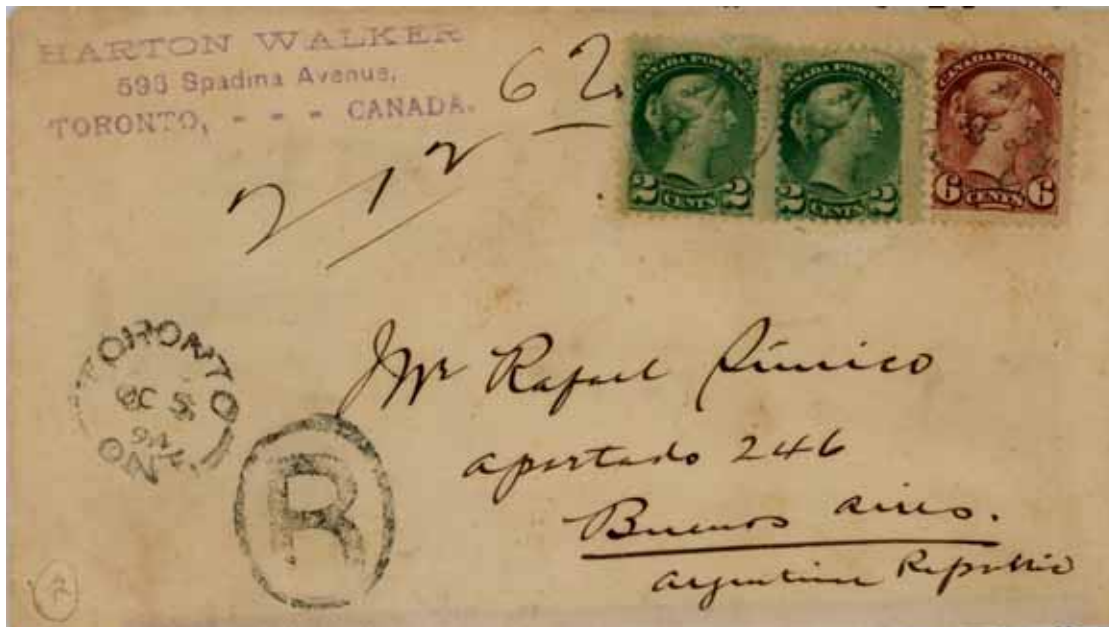 HARTON WALKER
593 Spadina Avenue,
TORONTO, - - - CANADA.
62
212
CANADA POSTAGE
2 CENTS 2
CANADA POSTAGE
2 CENTS 2
CANADA POSTAGE
6 CENTS 6
Mr Rafael
apartado 246
Buenos Aires.
Argentine Republic
TORONTO
ONT
R
2